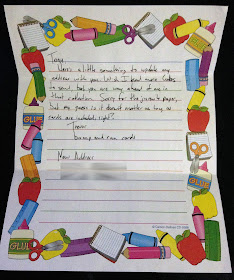 Troy,
Here's a little something to update my
address with you. Wish I had more Cubs
to send, but you are way ahead of me in
that collection. Sorry for the juvenile paper,
but my guess is it doesn't matter as long as
cards are included, right?
Trevor
bump and run cards
New Address:
GLUE
GLUE
GLUE